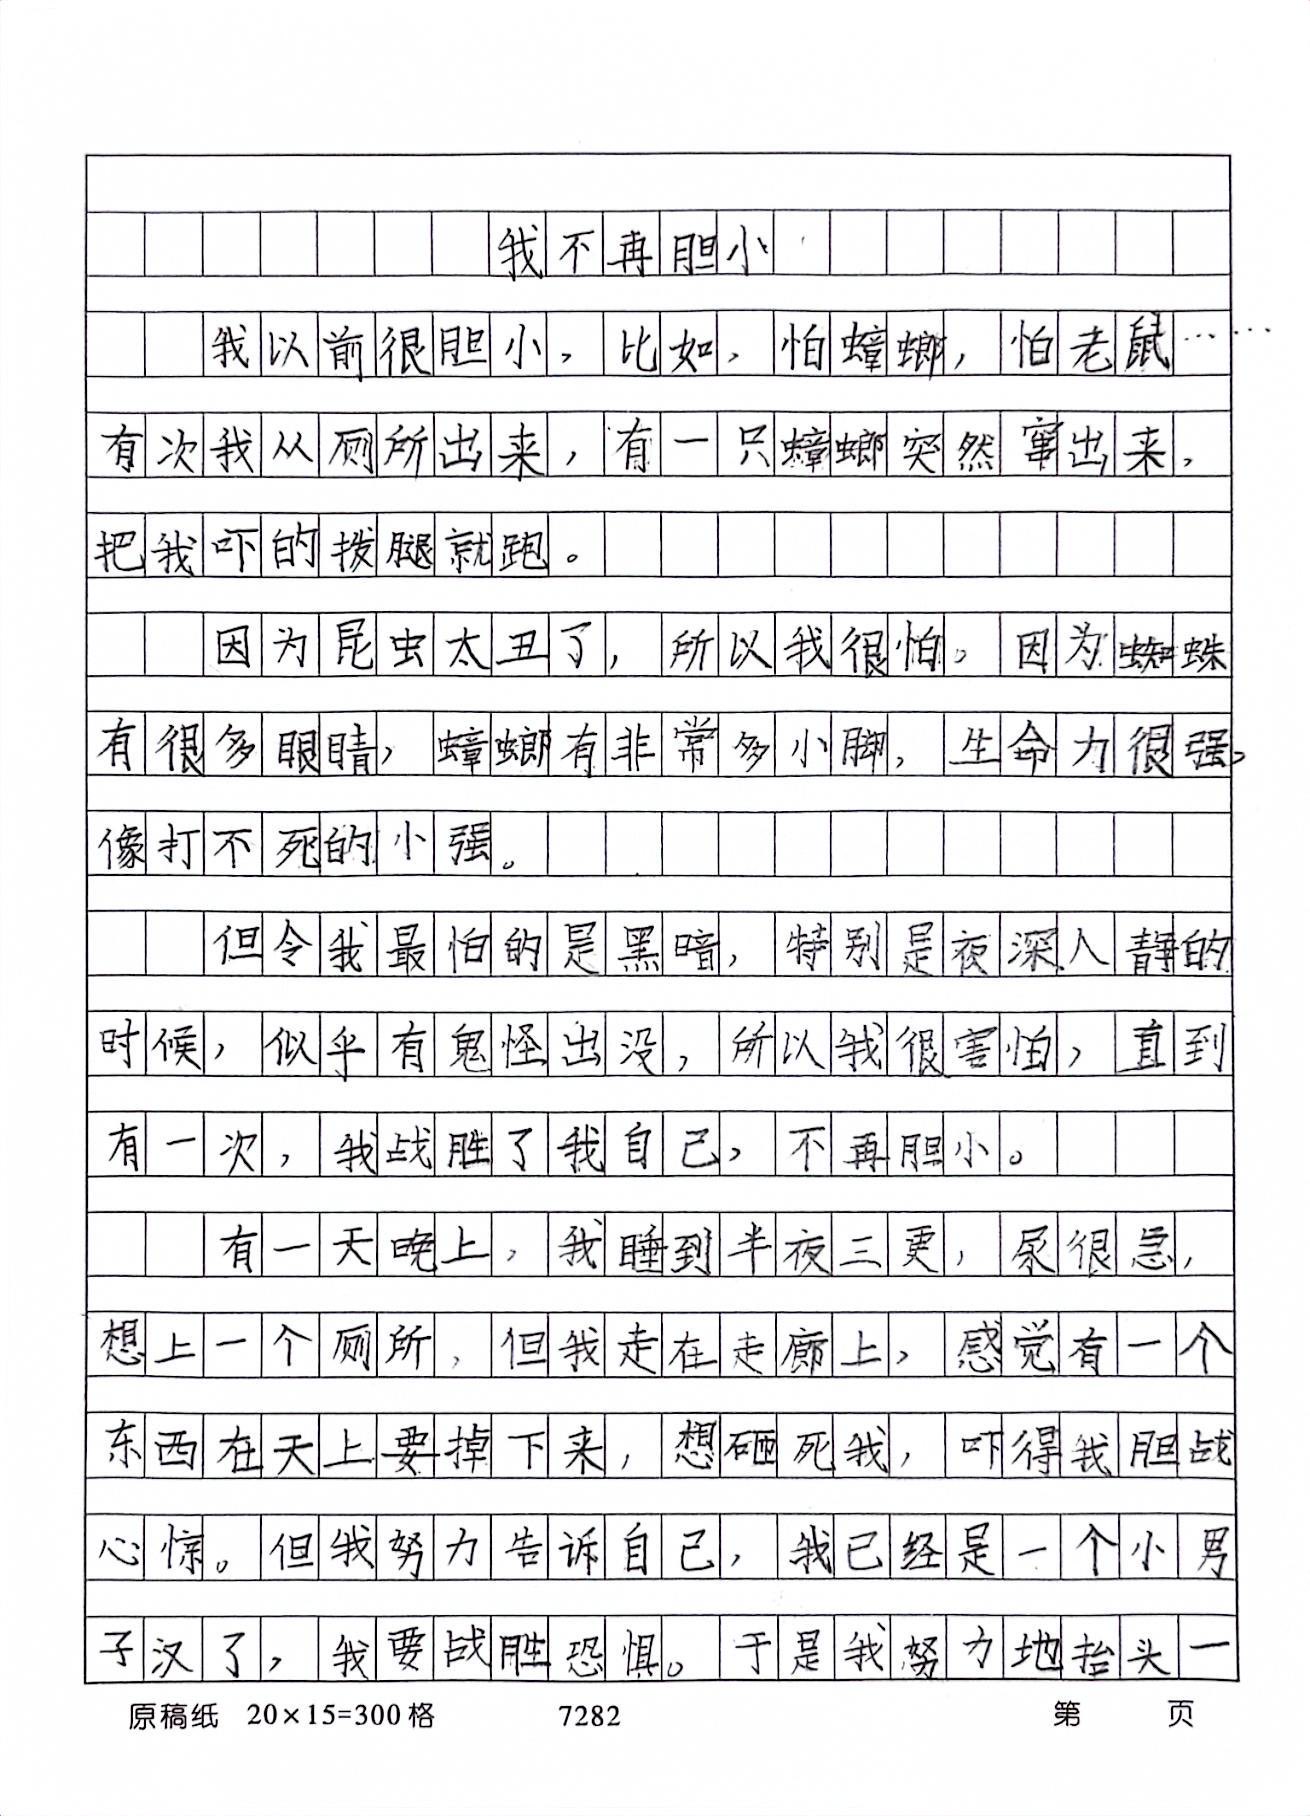 我不再胆小
我以前很胆小，比如，怕蟑螂，怕老鼠……
有次我从厕所出来，有一只蟑螂突然窜出来，
把我吓的拨腿就跑。
因为昆虫太丑了，所以我很怕。因为蜘蛛
有很多眼睛，蟑螂有非常多小脚，生命力很强，
像打不死的小强。
但令我最怕的是黑暗，特别是夜深人静的
时候，似乎有鬼怪出没，所以我很害怕，直到
有一次，我战胜了我自己，不再胆小。
有一天晚上，我睡到半夜三更，尿很急，
想上一个厕所，但我走在走廊上，感觉有一个
东西在天上要掉下来，想砸死我，吓得我胆战
心惊。但我努力告诉自己，我已经是一个小男
子汉了，我要战胜恐惧。于是我努力地抬头一
原稿纸 20×15=300格 7282 第 页